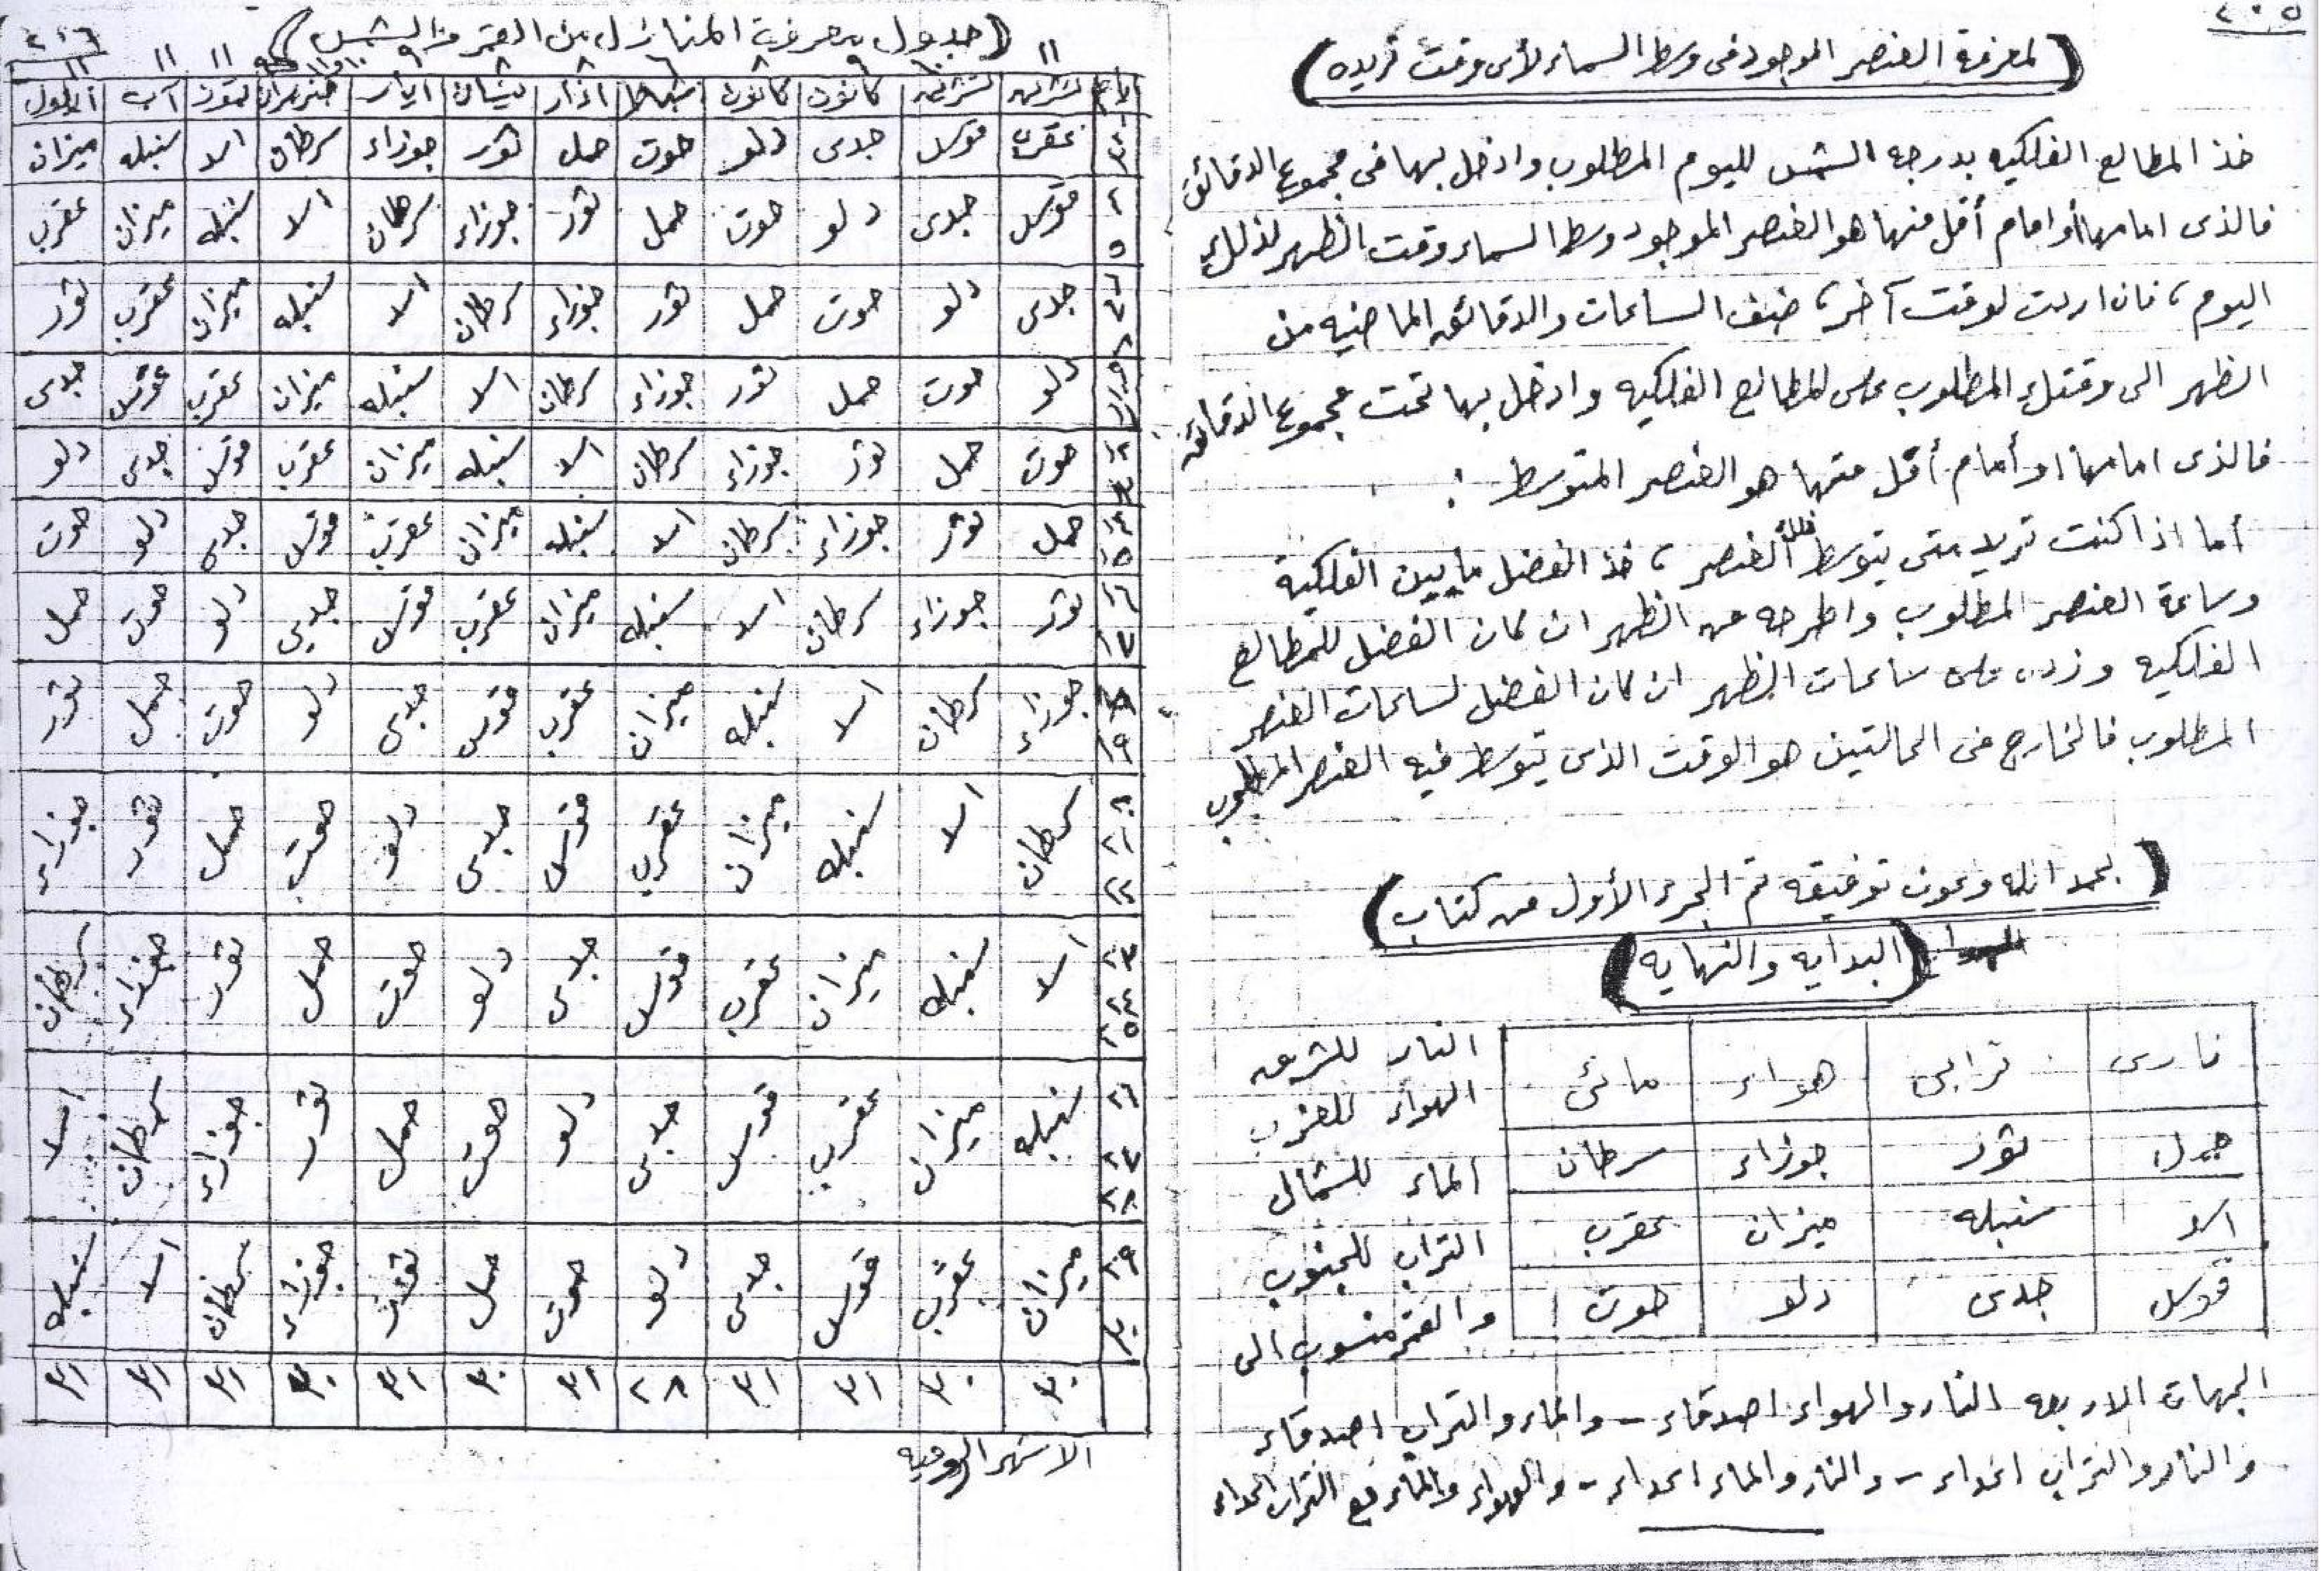 ٢٠٥
(لمعرفة العنصر الموجود فى وسط السماء لأى وقت تريده)
خذ المطالع الفلكيه بدرجه الشمس لليوم المطلوب وادخل بها فى مجموع الدقائق
فالذى امامها أو امام أقل منها هو العنصر الموجود وسط السماء وقت الظهر لذلك
اليوم ، فان اردت لوقت آخر ، ضف الساعات والدقائق الماضيه من
الظهر الى وقتك المطلوب على المطالع الفلكيه وادخل بها تحت مجموع الدقائق
فالذى امامها او أمام أقل منها هو العنصر المتوسط :
أما اذا كنت تريد متى يتوسط فلك العنصر ، خذ الفضل ما بين الفلكية
وساعة العنصر المطلوب واطرحه من الظهر ان كان الفضل للمطالع
الفلكيه وزده على ساعات الظهر ان كان الفضل لساعات العنصر
المطلوب فالخارج فى الحالتين هو الوقت الذى يتوسط فيه العنصر المطلوب
(بحمد الله وعون توفيقه تم الجزء الأول من كتاب)
(البدايه والنهايه)
نارى ترابى هواء مائى
حمل ثور جوزاء سرطان
اسد سنبله ميزان عقرب
قوس جدى دلو حوت
النار للشرق
الهواء للغرب
الماء للشمال
التراب للجنوب
والقمر منسوب الى
الجهات الاربعه النار والهواء اصدقاء - والماء والتراب اصدقاء
والنار والتراب اعداء - والنار والماء اعداء - والهواء والماء مع التراب اعداء
(جدول معرفة المنازل من القمر والشمس) ٢٠٦
١١ ٨ ٦ ٨ ٨ ٩ ١١ ١١ ١١
ايام تشرين تشرين كانون كانون شباط اذار نيسان ايار حزيران تموز آب ايلول
عقرب قوس جدى دلو حوت حمل ثور جوزاء سرطان اسد سنبله ميزان
قوس جدى دلو حوت حمل ثور جوزاء سرطان اسد سنبله ميزان عقرب
جدى دلو حوت حمل ثور جوزاء سرطان اسد سنبله ميزان عقرب ثور
دلو حوت حمل ثور جوزاء سرطان اسد سنبله ميزان عقرب قوس جدى
حوت حمل ثور جوزاء سرطان اسد سنبله ميزان عقرب قوس جدى دلو
١٥ حمل ثور جوزاء سرطان اسد سنبله ميزان عقرب قوس جدى دلو حوت
١٦ ١٧ ثور جوزاء سرطان اسد سنبله ميزان عقرب قوس جدى دلو حوت حمل
١٨ ١٩ جوزاء سرطان اسد سنبله ميزان عقرب قوس جدى دلو حوت حمل ثور
٢١ ٢٢ سرطان اسد سنبله ميزان عقرب قوس جدى دلو حوت حمل ثور جوزاء
٢٣ ٢٤ ٢٥ اسد سنبله ميزان عقرب قوس جدى دلو حوت حمل ثور جوزاء سرطان
٢٦ ٢٧ ٢٨ سنبله ميزان عقرب قوس جدى دلو حوت حمل ثور جوزاء سرطان اسد
٢٩ ٣٠ ميزان عقرب قوس جدى دلو حوت حمل ثور جوزاء سرطان اسد سنبله
٣٠ ٣٠ ٣١ ٣١ ٢٨ ٣١ ٣٠ ٣١ ٣٠ ٣١ ٣١ ٣١
الاشهر الروميه